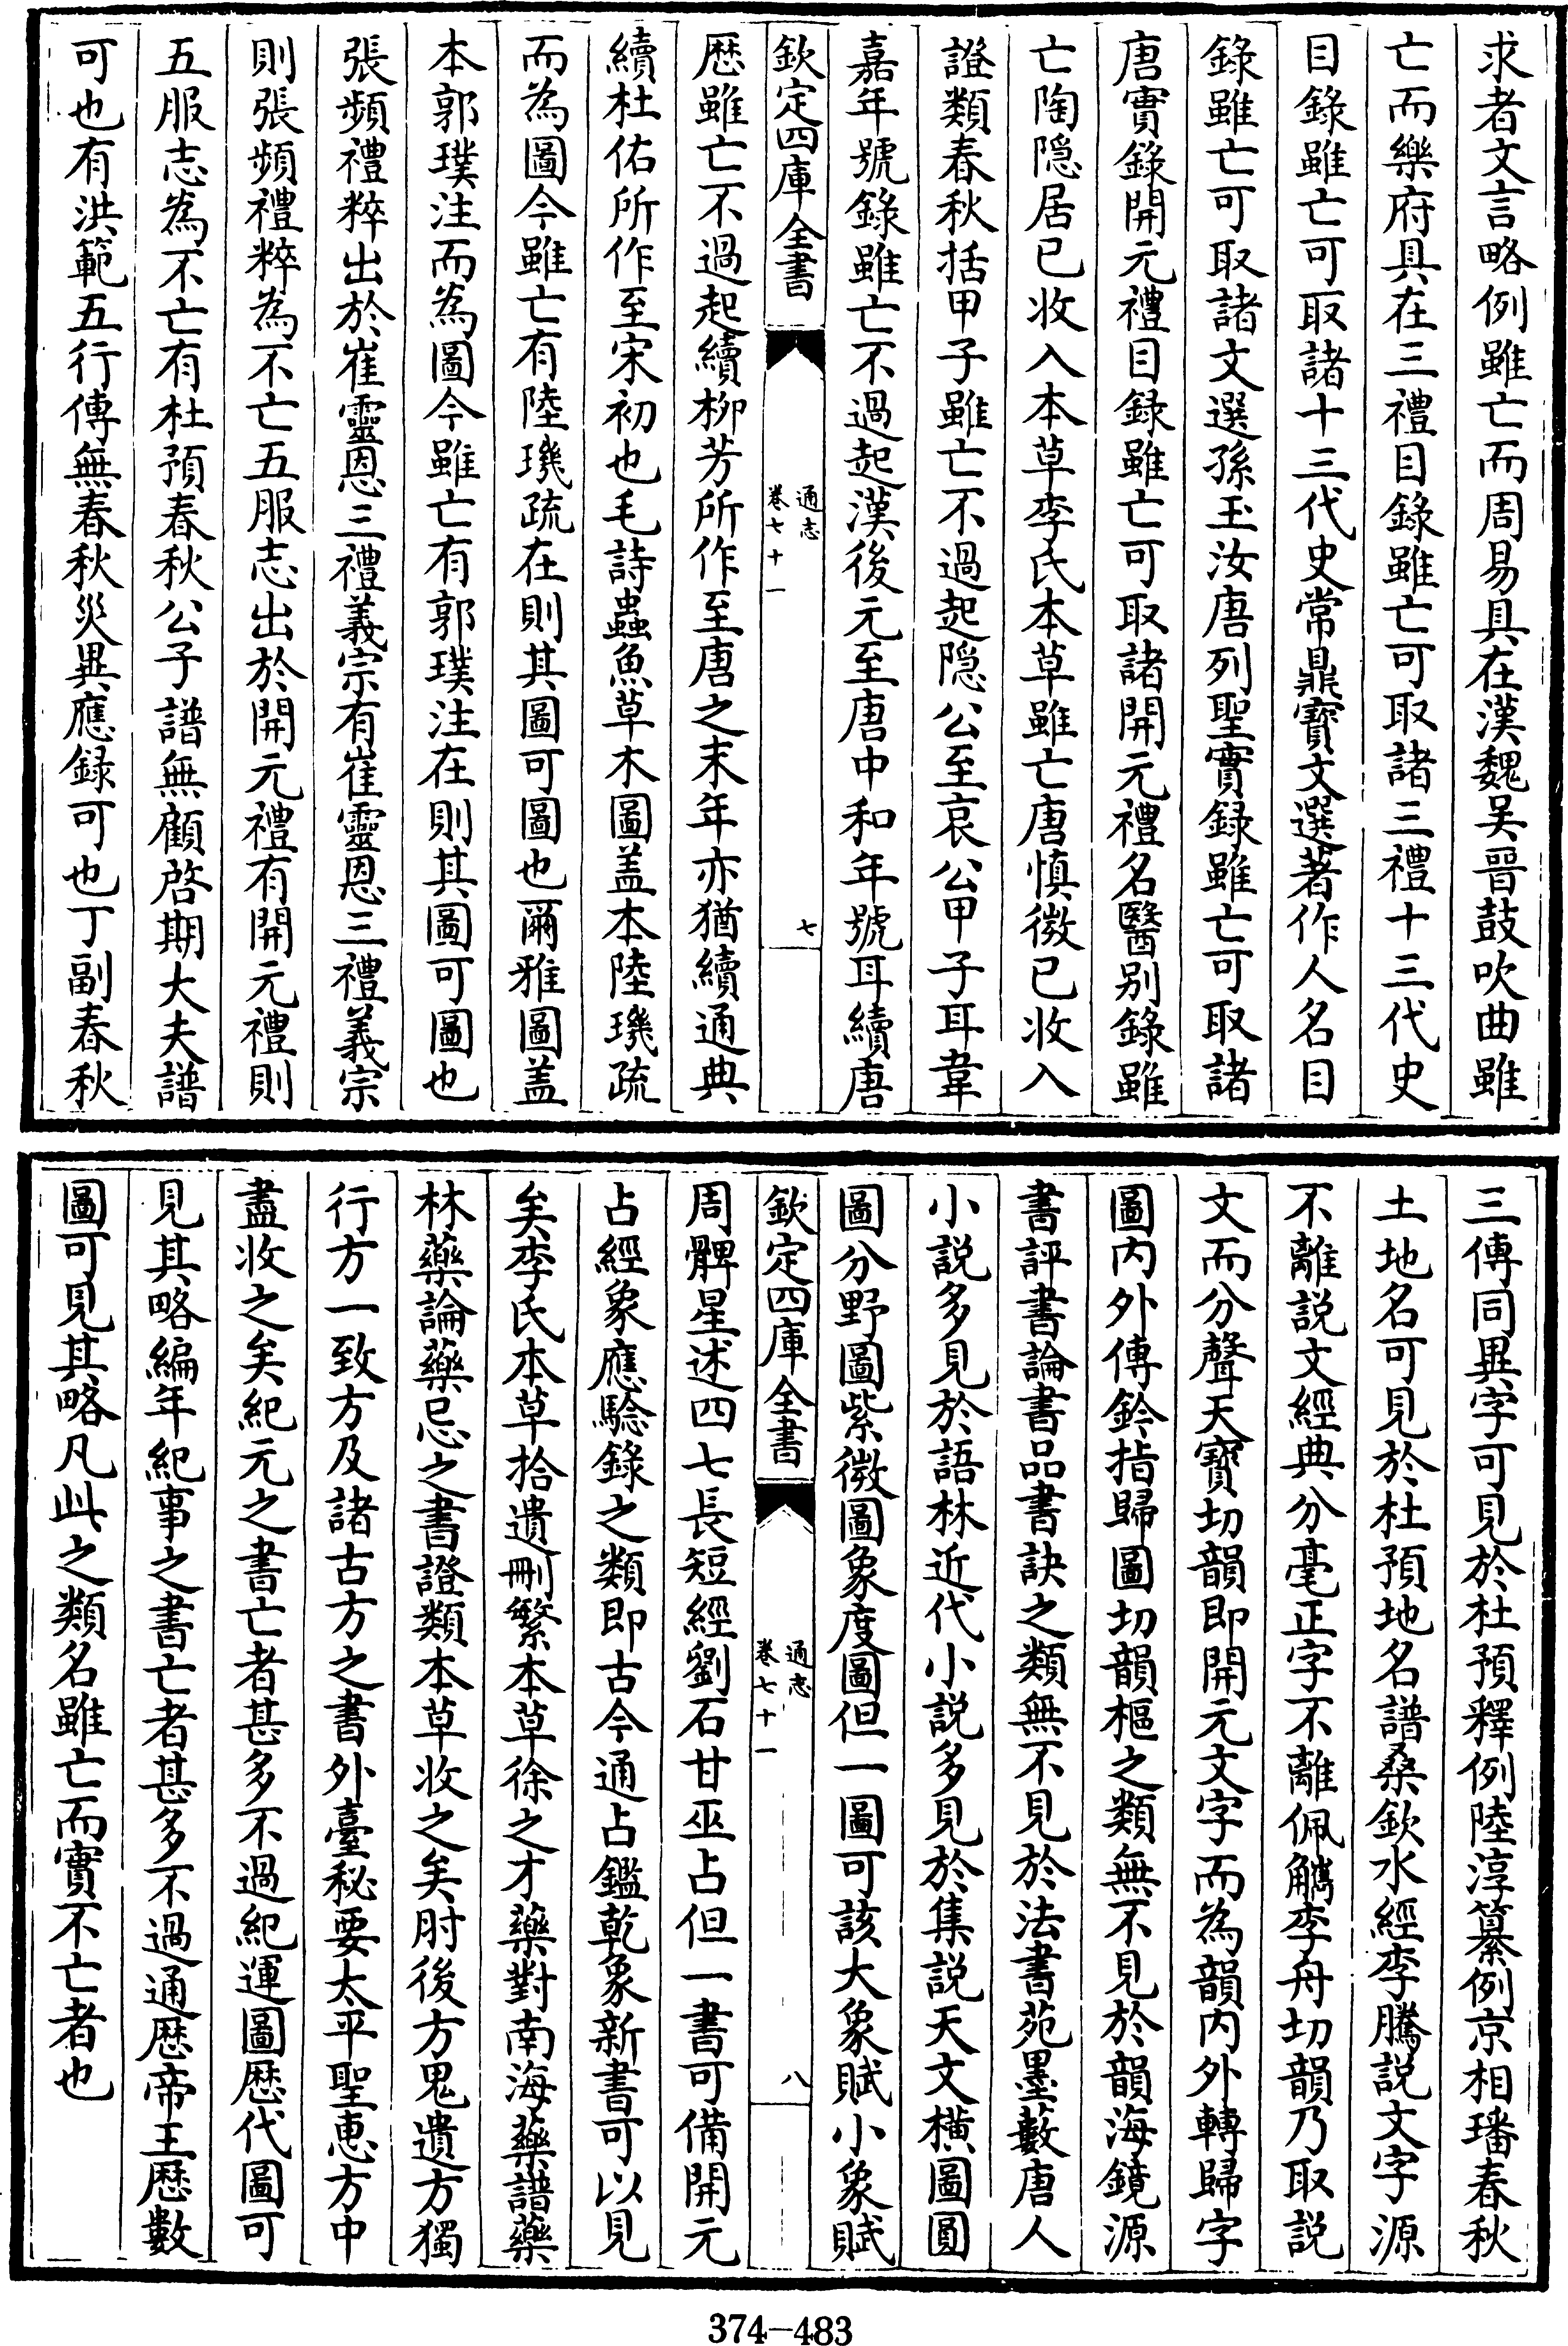 求者文言略例雖亡而周易具在漢魏吴晉鼓吹曲雖
亡而樂府具在三禮目錄雖亡可取諸三禮十三代史
目錄雖亡可取諸十三代史常鼎寳文選著作人名目
錄雖亡可取諸文選孫玉汝唐列聖實録雖亡可取諸
唐實錄開元禮目録雖亡可取諸開元禮名醫别錄雖
亡陶隐居已收入本草李氏本草雖亡唐慎微已收入
證類春秋括甲子雖亡不過起隐公至哀公甲子耳韋
嘉年號錄雖亡不過起漢後元至唐中和年號耳續唐
欽定四庫全書
通志
卷七十一
七
厯雖亡不過起續柳芳所作至唐之末年亦猶續通典
續杜佑所作至宋初也毛詩蟲魚草木圖盖本陸璣疏
而為圖今雖亡有陸璣疏在則其圖可圖也爾雅圖盖
本郭璞注而為圖今雖亡有郭璞注在則其圖可圖也
張頻禮粹出於崔靈恩三禮義宗有崔靈恩三禮義宗
則張頻禮粹為不亡五服志出於開元禮有開元禮則
五服志為不亡有杜預春秋公子譜無顧啓期大夫譜
可也有洪範五行傳無春秋災異應録可也丁副春秋
三傳同異字可見於杜預釋例陸淳纂例京相璠春秋
土地名可見於杜預地名譜桑欽水經李騰説文字源
不離説文經典分毫正字不離佩觿李舟切韻乃取説
文而分聲天寳切韻即開元文字而為韻内外轉歸字
圖内外傳鈐指歸圖切韻樞之類無不見於韻海鏡源
書評書論書品書訣之類無不見於法書苑墨藪唐人
小説多見於語林近代小説多見於集説天文横圖圓
圖分野圖紫微圖象度圖但一圖可該大象賦小象賦
欽定四庫全書
通志
卷七十一
八
周髀星述四七長短經劉石甘巫占但一書可備開元
占經象應騐錄之類即古今通占鑑乾象新書可以見
矣李氏本草拾遺刪繁本草徐之才藥對南海藥譜藥
林藥論藥忌之書證類本草收之矣肘後方鬼遺方獨
行方一致方及諸古方之書外臺秘要太平聖惠方中
盡收之矣紀元之書亡者甚多不過紀運圖厯代圖可
見其略編年紀事之書亡者甚多不過通厯帝王厯數
圖可見其略凡此之類名雖亡而實不亡者也
374-483